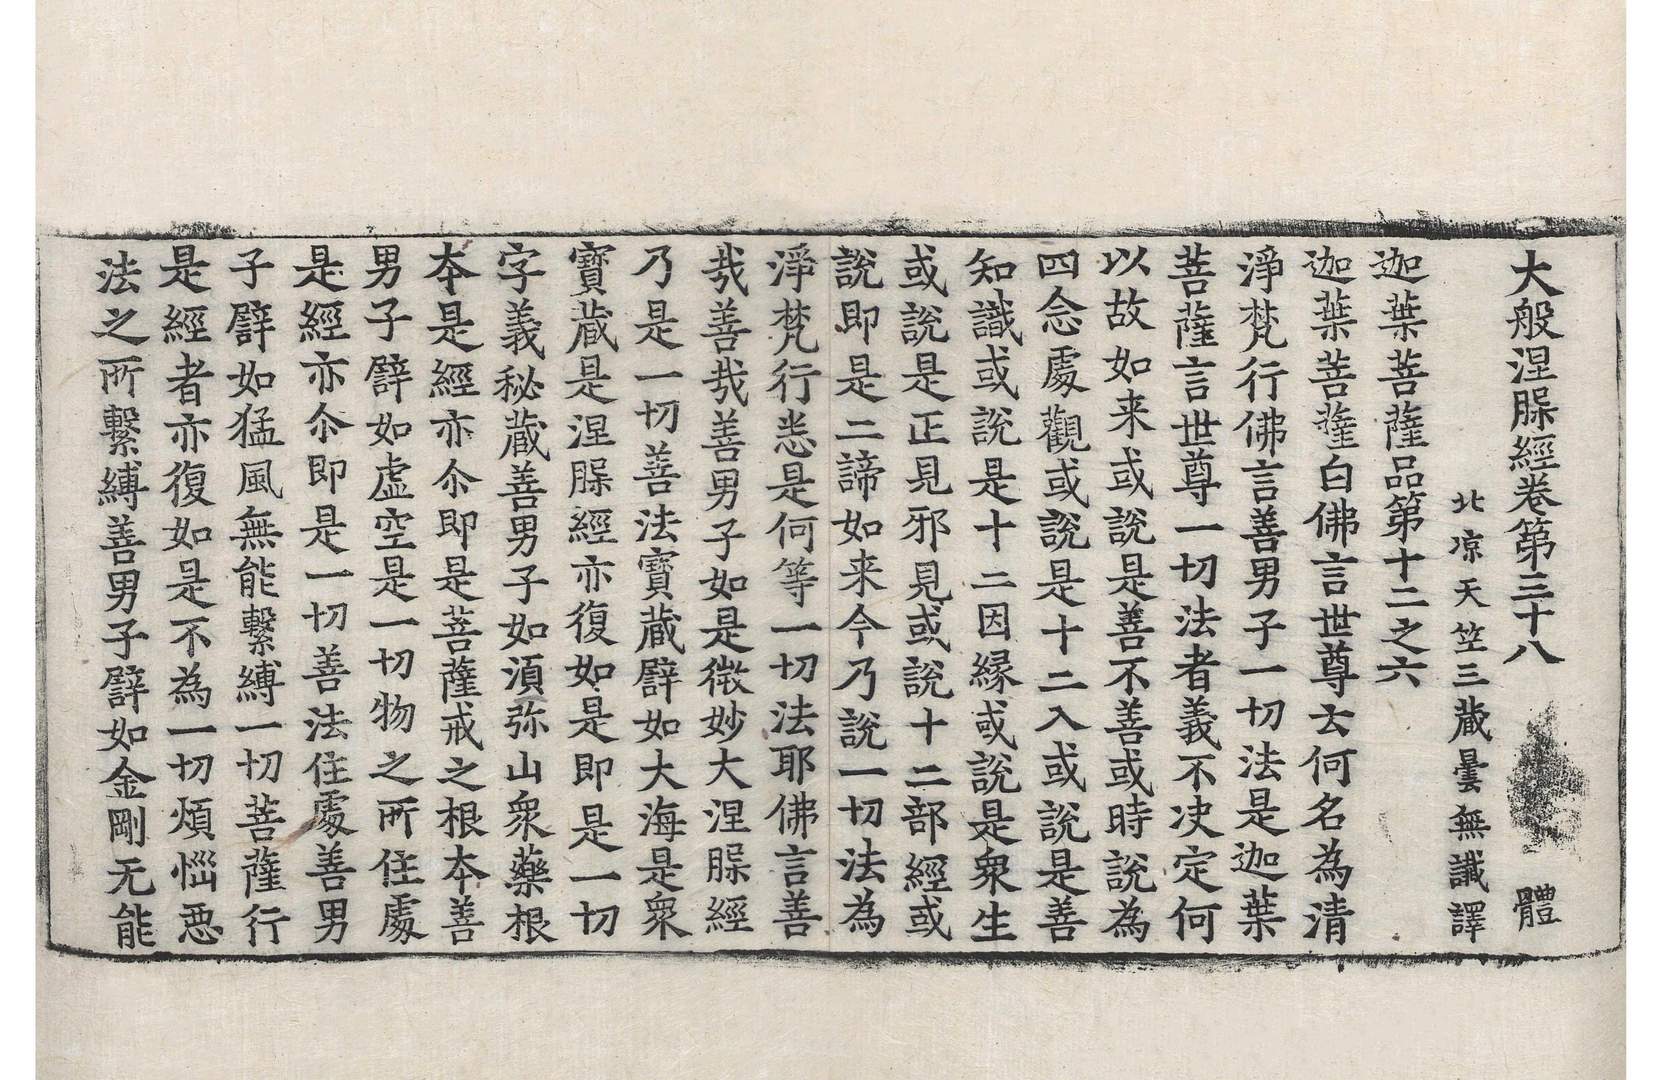 大般涅槃經卷第三十八 體
北凉天竺三藏曇無讖譯
迦葉菩薩品第十二之六
迦葉菩薩白佛言世尊云何名為清
淨梵行佛言善男子一切法是迦葉
菩薩言世尊一切法者義不决定何
以故如来或說是善不善或時說為
四念處觀或說是十二入或說是善
知識或說是十二因縁或說是衆生
或說是正見邪見或說十二部經或
說即是二諦如来今乃說一切法為
淨梵行悉是何等一切法耶佛言善
哉善哉善男子如是微妙大涅槃經
乃是一切善法寶藏譬如大海是衆
寶藏是涅槃經亦復如是即是一切
字義秘藏善男子如湏弥山衆藥根
本是經亦尒即是菩薩戒之根本善
男子譬如虛空是一切物之所住處
是經亦尒即是一切善法住處善男
子譬如猛風無能繫縛一切菩薩行
是經者亦復如是不為一切煩惱惡
法之所繫縛善男子譬如金剛无能